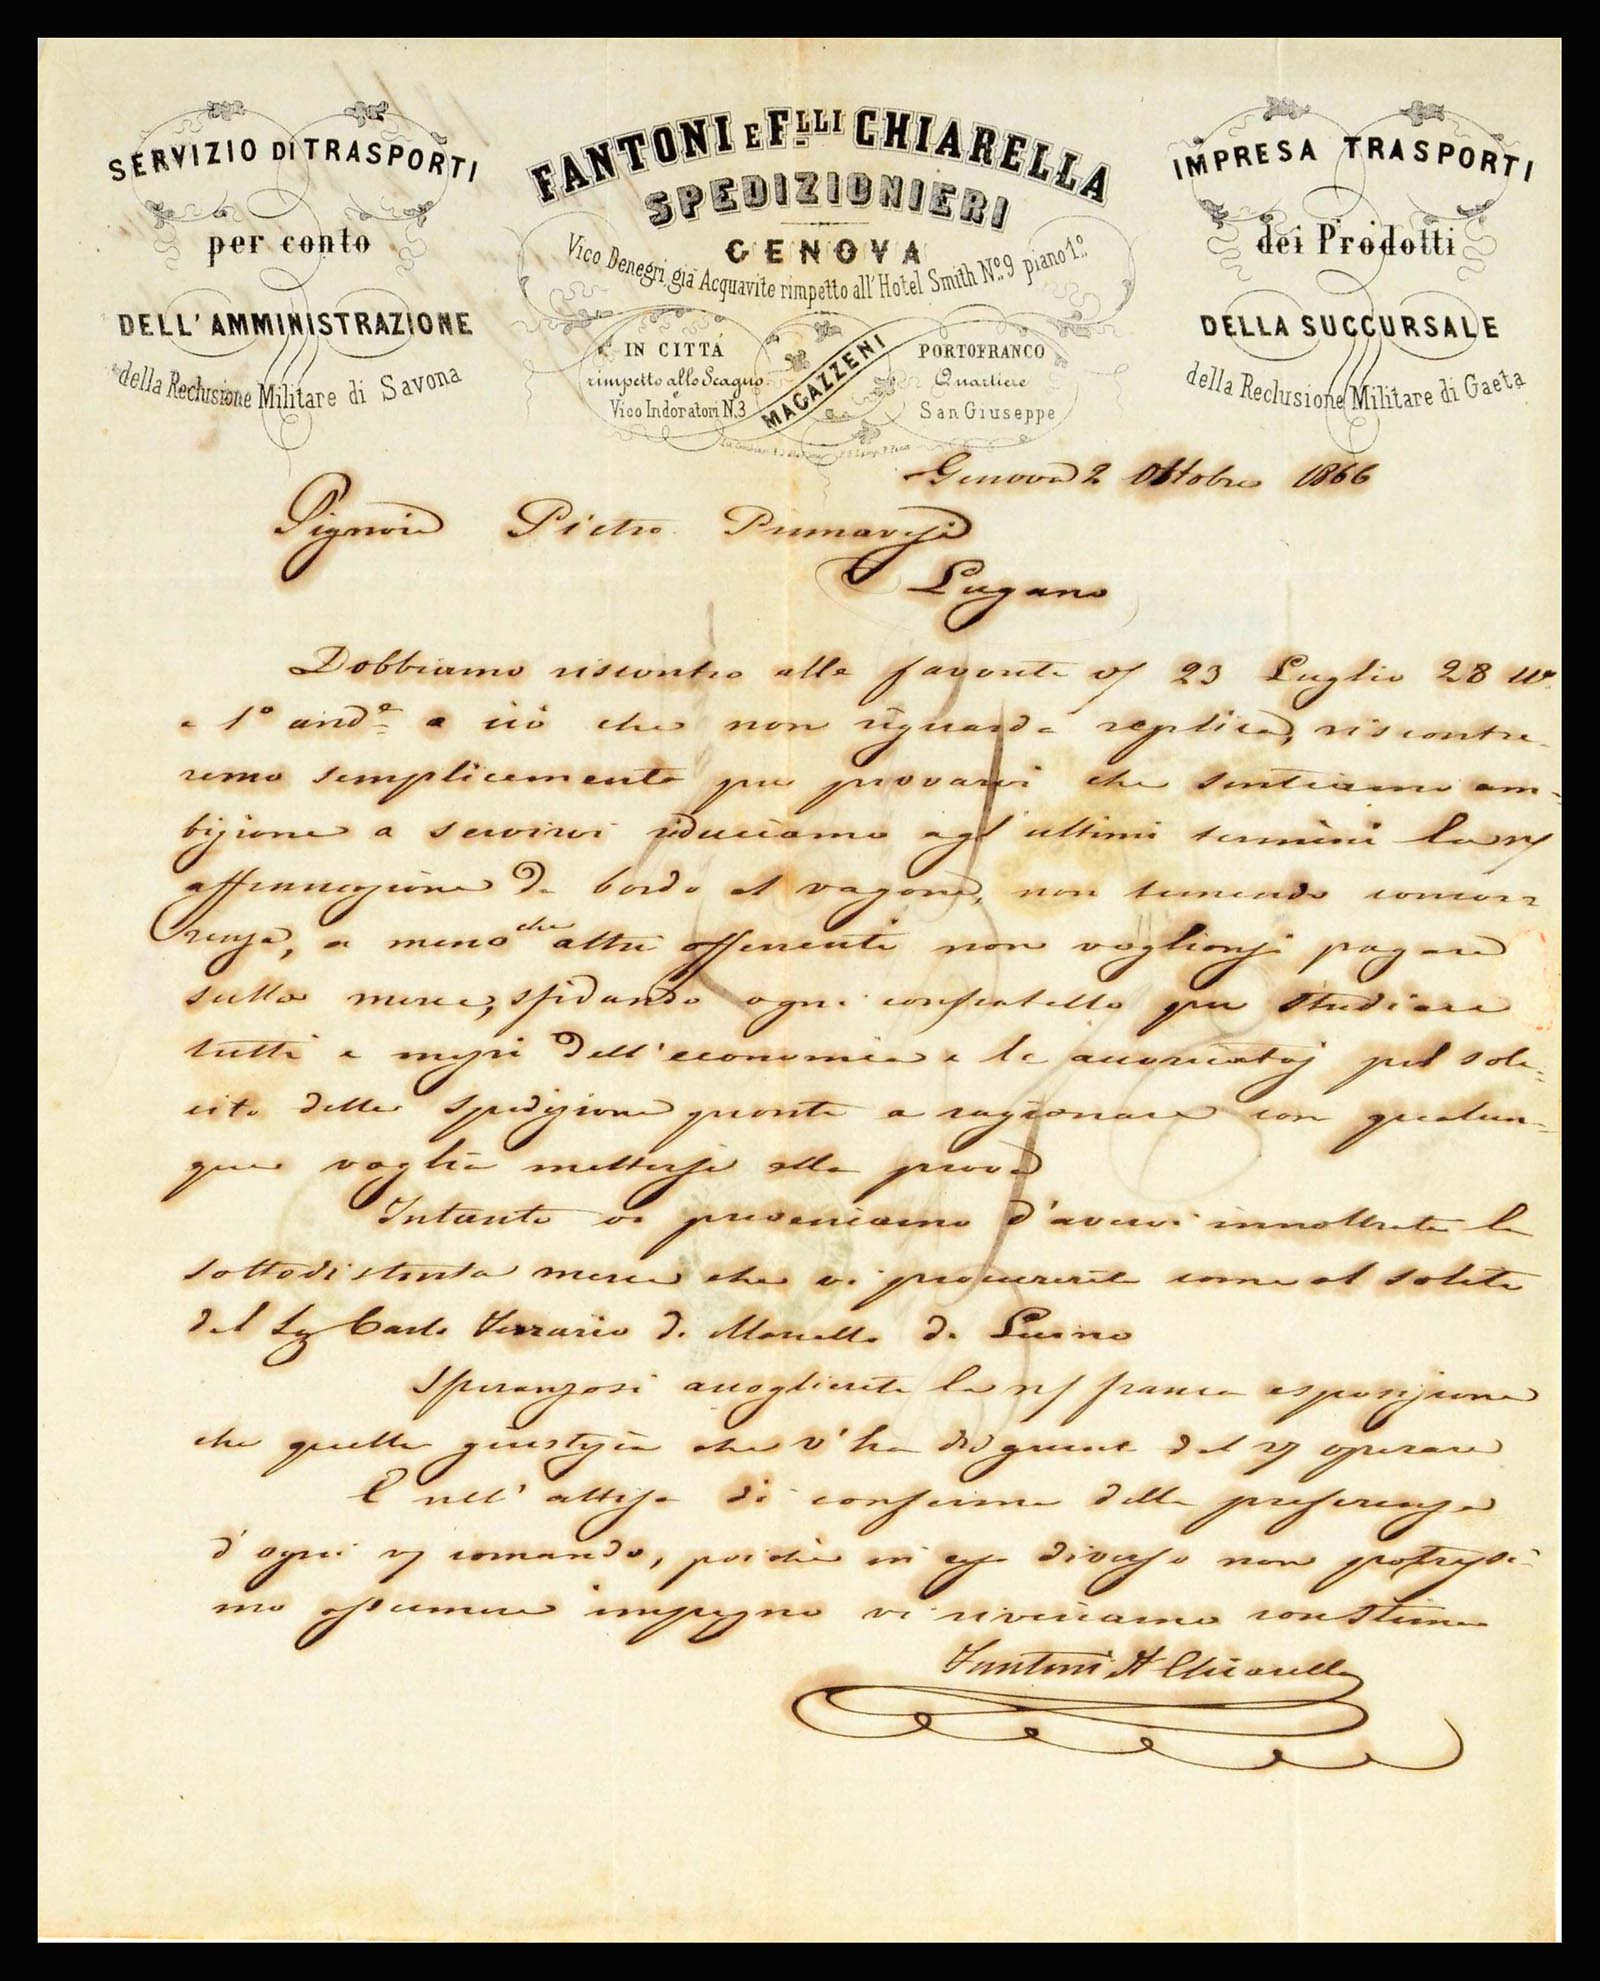 SERVIZIO DI TRASPORTI
per conto
DELL'AMMINISTRAZIONE
della Reclusione Militare di Savona
FANTONI E FLLI CHIARELLA
SPEDIZIONIERI
GENOVA
Vico Denegri già Acquavite rimpetto all'Hotel Smith No. 9 piano 1.o
IN CITTÁ
rimpetto allo Scagno
e
Vico Indoratori N.3
MAGAZZENI
PORTOFRANCO
Quartiere
San Giuseppe
IMPRESA TRASPORTI
dei Prodotti
DELLA SUCCURSALE
della Reclusione Militare di Gaeta
Genova 2 Ottobre 1866
Signore Pietro Primavesi
Lugano
Dobbiamo riscontro alle favorite v/ 23 Luglio 28
e 1° and.e e ciò che non riguarda replica, riscontre-
remo semplicemente per provarvi che sentiamo am=
bizione a servirvi riduciamo agl'ultimi termini la n/
affrancazione da bordo al vagone, non temendo concor=
renza, a meno che altri offerenti non voglionsi pagare
sulla merce, sfidando ogni confratello per studiare
tutti e mezzi dell'economia e le pel sole=
cito delle spedizione pronti a ragionare con qualun=
que voglia mettersi alla prova
Intanto vi preveniamo d'avervi innoltrato la
sottodistinta merce che vi procurerete come al solito
del Sg Carlo Ferrario di Luino
Speranzosi accoglierete la n/ franca esposizione
che quella giustizia che v'ha del n/ operare
E nell'attesa di conferma della preferenza
d'ogni v/ comando, poichè in caso diverso non potressi-
mo assumere impegno vi riveriamo con stima
Fantoni Chiarella